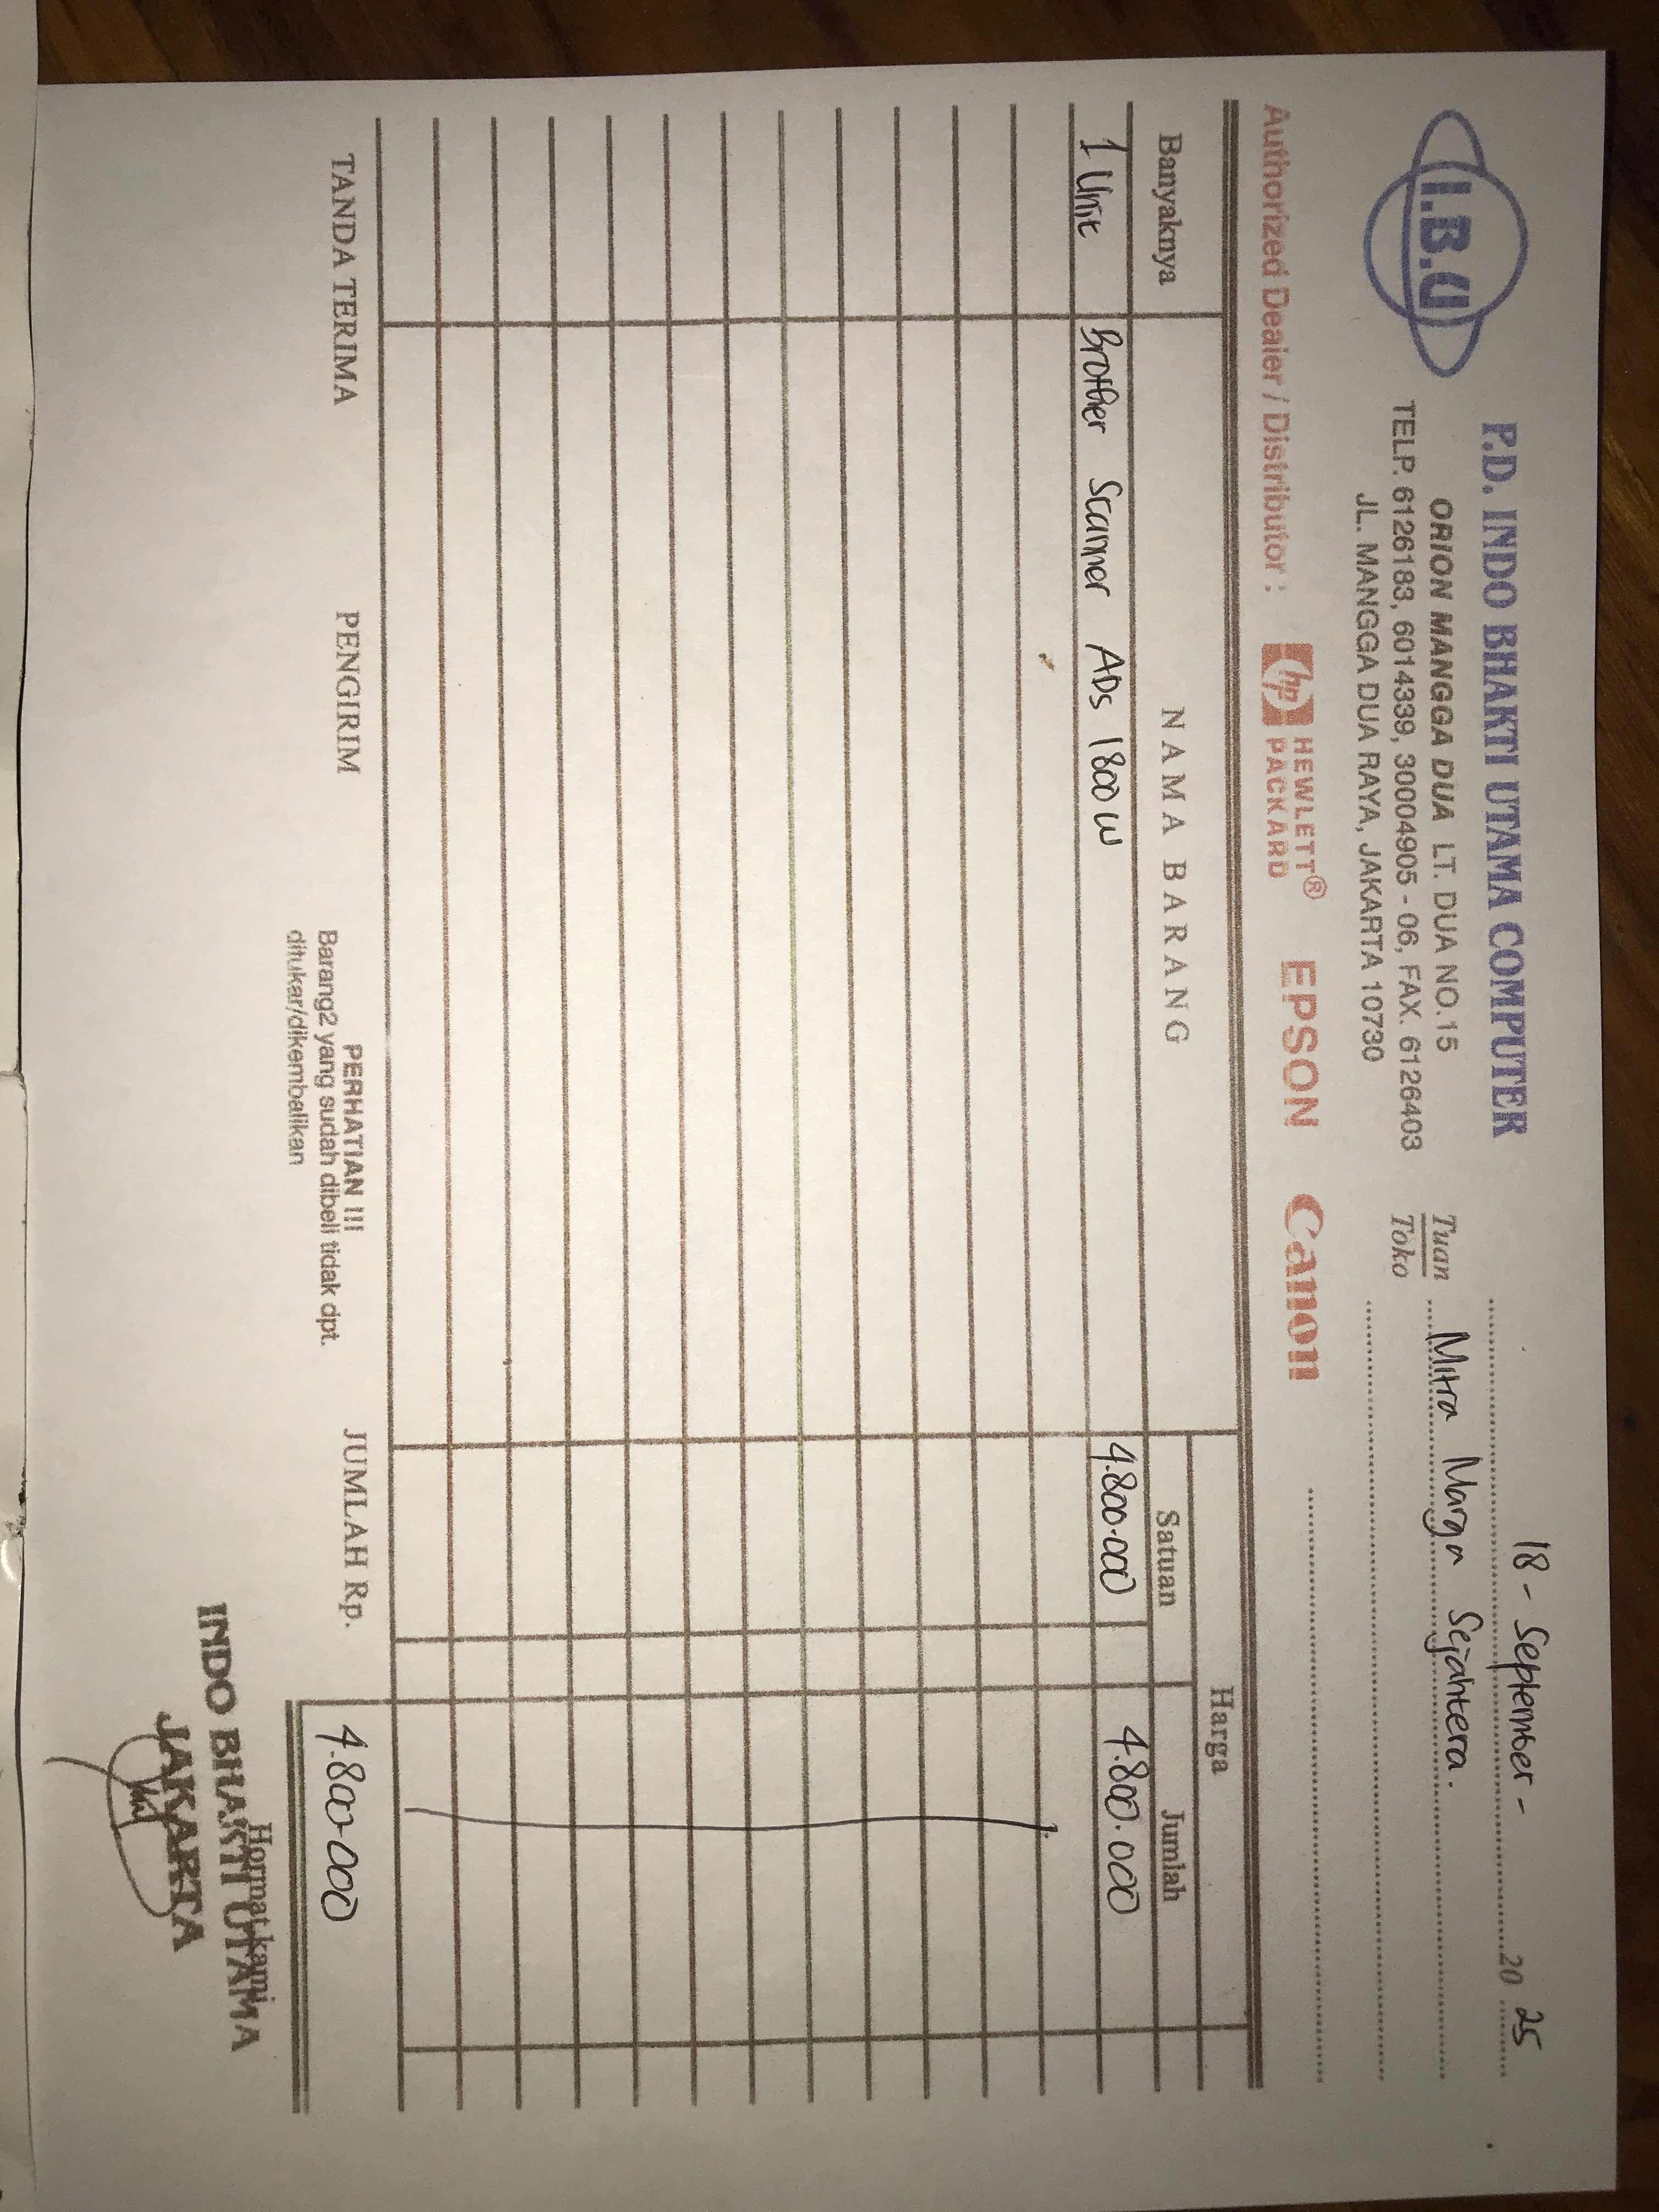 I.B.U
P.D. INDO BHAKTI UTAMA COMPUTER
ORION MANGGA DUA LT. DUA NO.15
TELP. 6126183, 6014339, 30004905 - 06, FAX. 6126403
JL. MANGGA DUA RAYA, JAKARTA 10730
18 - September - 20 25
Tuan
Toko
Mitra Marga Sejahtera.
Authorized Dealer / Distributor : hp HEWLETT® PACKARD EPSON Canon
Banyaknya NAMA BARANG Harga
Satuan Jumlah
1 Unit Brother Scanner ADS 1800 W 4.800.000 4.800.000
TANDA TERIMA PENGIRIM JUMLAH Rp. 4.800.000
PERHATIAN !!!
Barang2 yang sudah dibeli tidak dpt.
ditukar/dikembalikan
Hormat kami
INDO BHAKTI UTAMA
JAKARTA